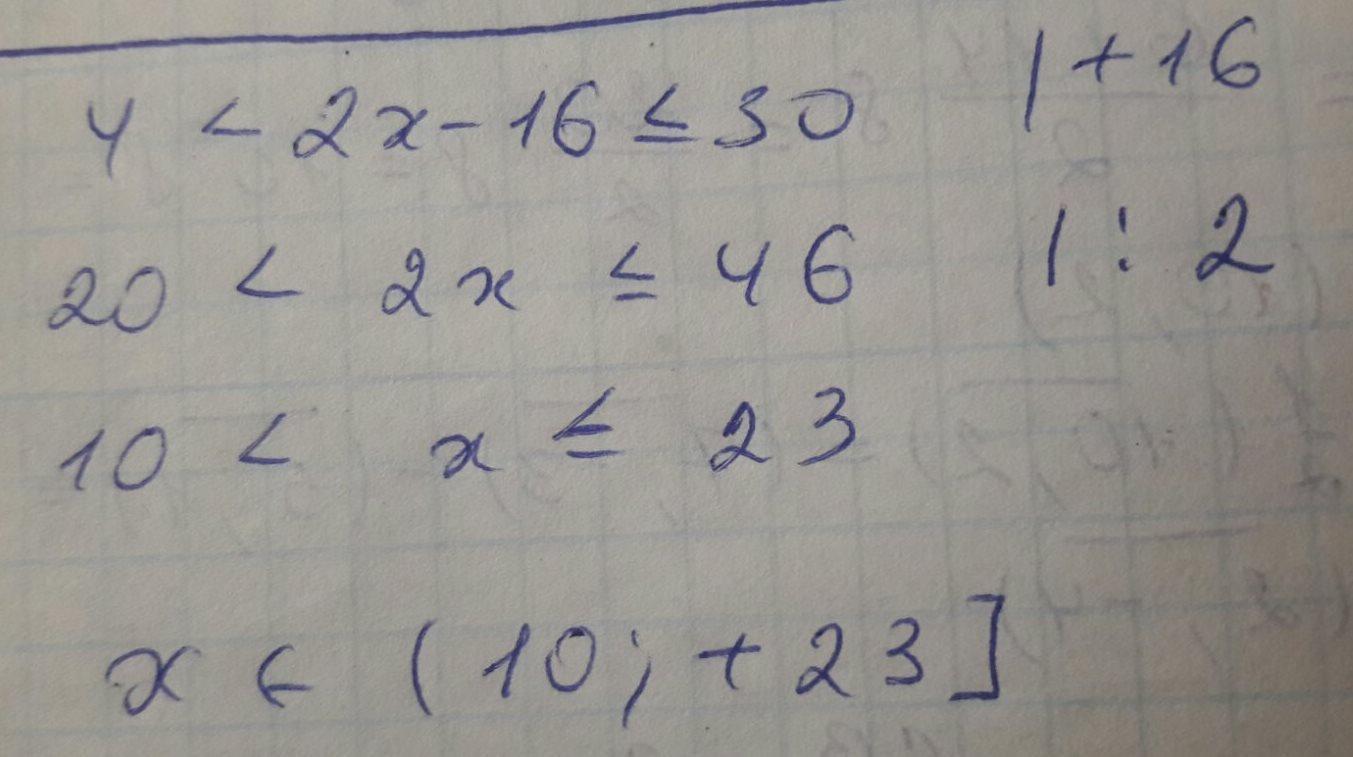 4 < 2x - 16 ≤ 30 | + 16
20 < 2x ≤ 46 | : 2
10 < x ≤ 23
x ∈ (10; + 23]